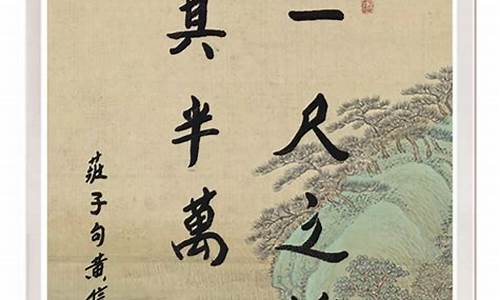 一尺之
其半萬
莊子句黃